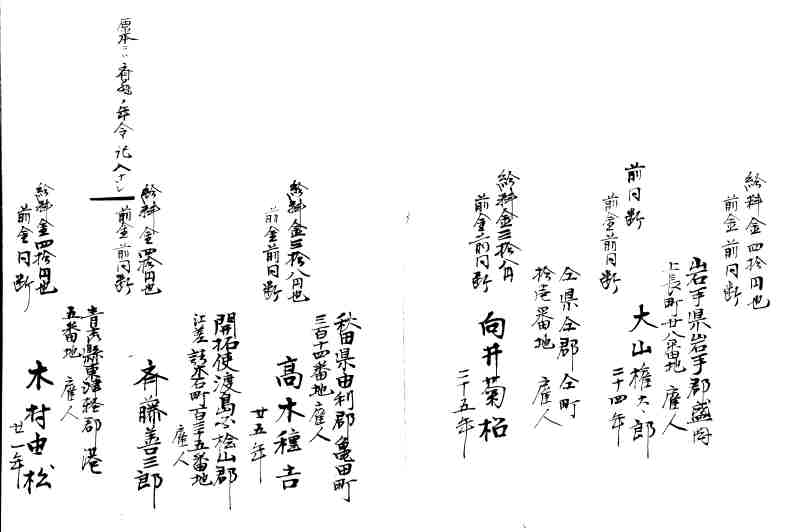 給料金四拾円也
前金前同断
岩手県岩手郡盛岡
上長町廿八番地 雇人
大山権太郎
三十四年
前同断
前金前同断
仝県仝郡仝町
拾壱番地 雇人
向井菊松
二十五年
給料金三拾八円
前金前同断
秋田県由利郡亀田町
三百十四番地 雇人
高木種吉
廿五年
給料金三拾八円也
前金前同断
開拓使渡島国桧山郡
江差 町百三十五番地
雇人
斉藤善三郎
給料金四拾円也
前金前同断
原本ニハ斉藤ノ年令記入ナシ
青森縣東津軽郡 港
五番地 雇人
木村由松
廿一年
給料金四拾円也
前金同断